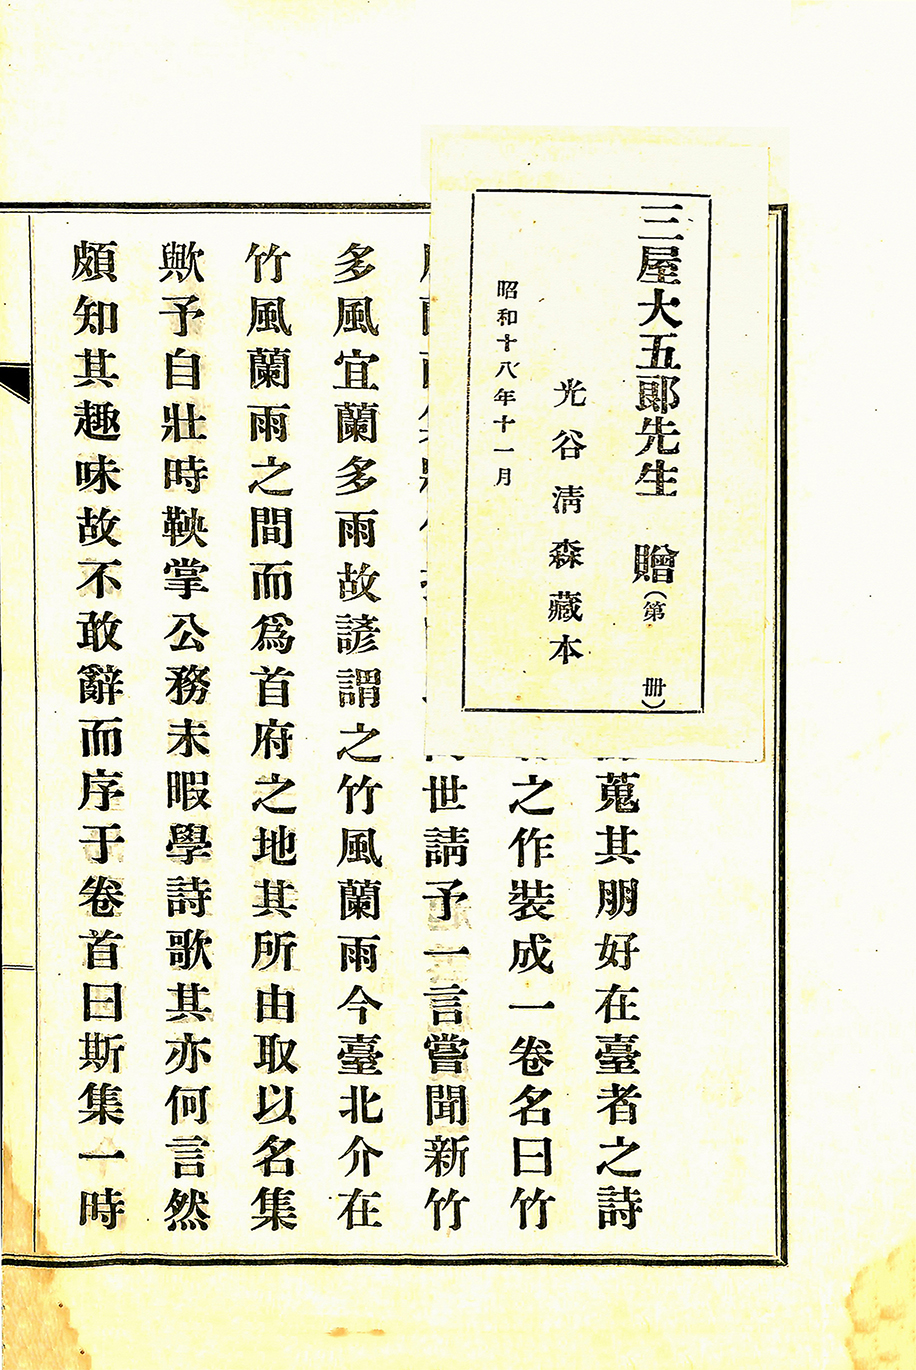 三屋大五郎先生　贈（第　　冊）
光谷清森藏本
昭和十八年十一月
蒐其朋好在臺者之詩
之作裝成一卷名曰竹
世請予一言嘗聞新竹
多風宜蘭多雨故諺謂之竹風蘭雨今臺北介在
竹風蘭雨之間而爲首府之地其所由取以名集
歟予自壯時鞅掌公務未暇學詩歌其亦何言然
頗知其趣味故不敢辭而序于卷首曰斯集一時